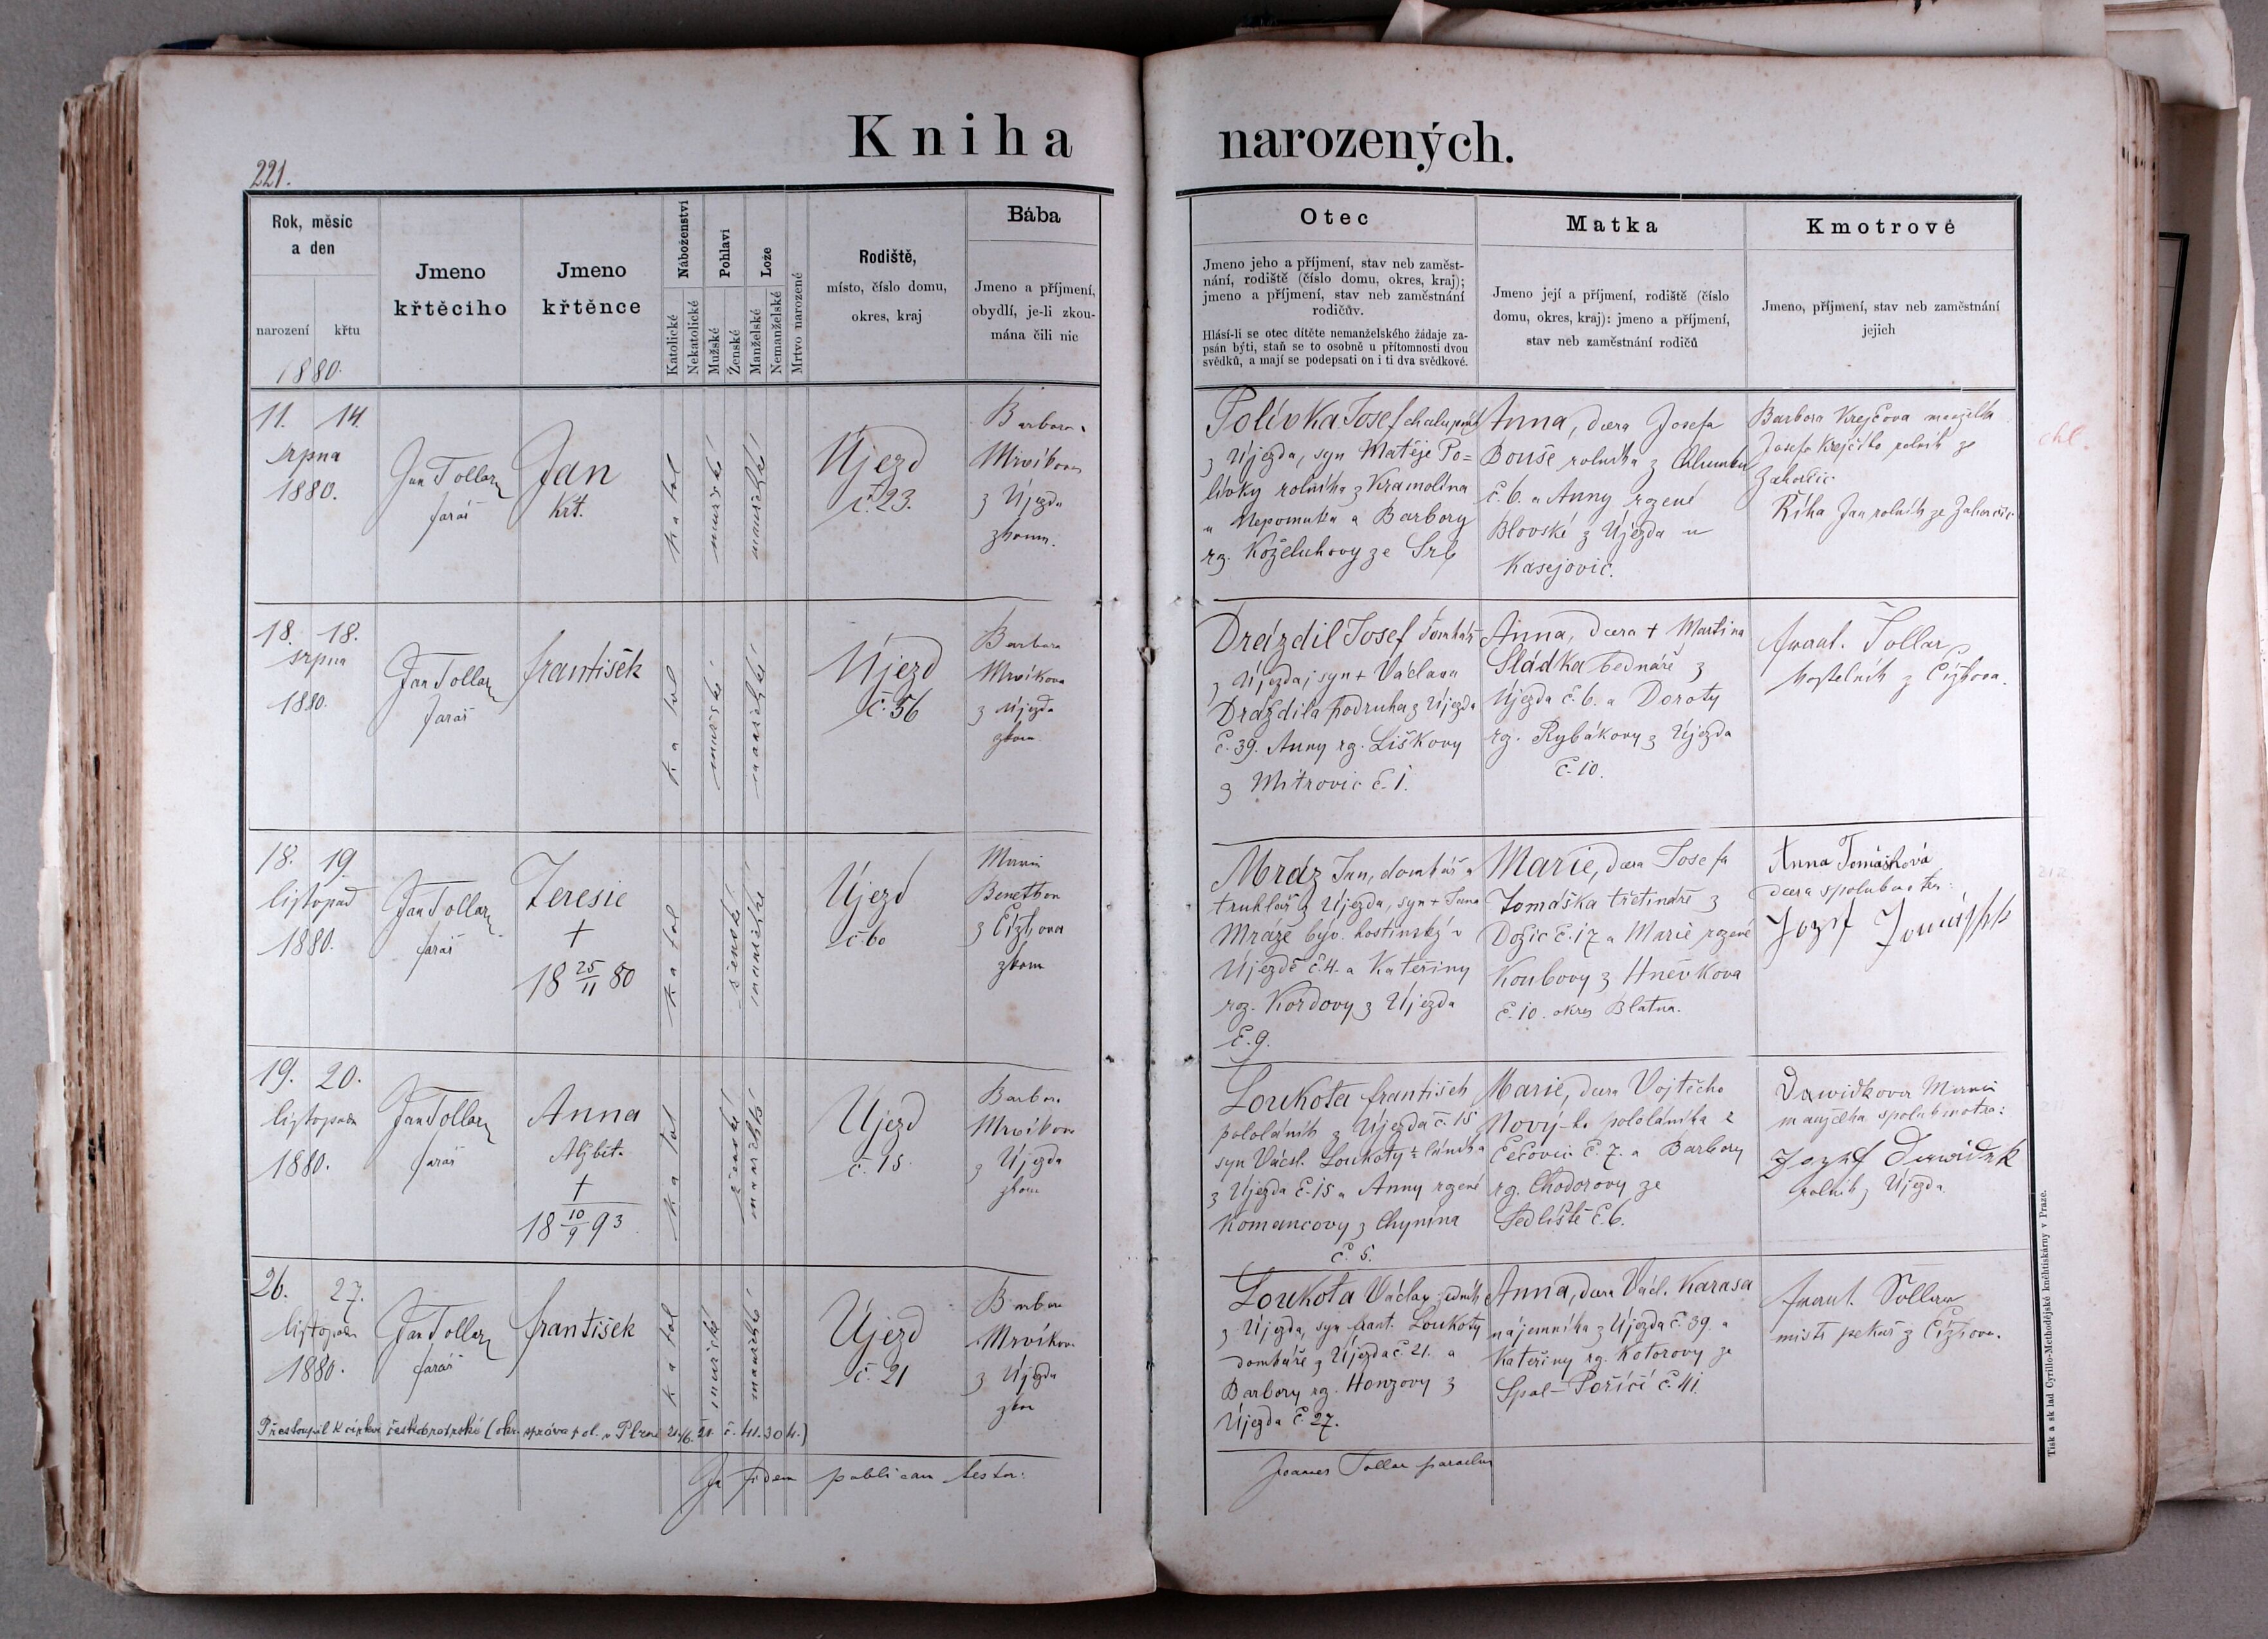 Kniha narozených.
221.
Rok, měsíc
a den
narození
křtu
1880.
Jmeno
křtěcího
Jmeno
křtěnce
Náboženství
Katolické
Nekatolické
Pohlaví
Mužské
Ženské
Lože
Manželské
Nemanželské
Mrtvo narozené
Rodiště,
místo, číslo domu,
okres, kraj
Bába
Jmeno a příjmení,
obydlí, je-li zkou-
mána čili nic
Otec
Jmeno jeho a příjmení, stav neb zaměst-
nání, rodiště (číslo domu, okres, kraj);
jmeno a příjmení, stav neb zaměstnání
rodičův.
Hlásí-li se otec dítěte nemanželského žádaje za-
psán býti, staň se to osobně u přítomnosti dvou
svědků, a mají se podepsati on i ti dva svědkové.
Matka
Jmeno její a příjmení, rodiště (číslo
domu, okres, kraj): jmeno a příjmení,
stav neb zaměstnání rodičů
Kmotrové
Jmeno, příjmení, stav neb zaměstnání
jejich
11. 14.
srpna
1880.
Jan Tollar
farář
Jan
křt.
katol
mužské
manželské
Újezd
č. 23.
Barbora
Mrvíkova
z Újezda
zkoum.
Polívka Josef chalupník
z Újezda, syn Matěje Po=
lívky rolníka z Kramolína
u Nepomuka a Barbory
rz. Koželuhovy ze Srb
Anna, dcera Josefa
Bouše rolníka z Chlumku
č. 6. a Anny rozené
Blovské z Újezda u
Kasejovic.
Barbora Krejčova manželka
Josefa Krejčího rolník ze
Zahorčic
Říha Jan rolník ze Zahorčic
chl.
18. 18.
srpna
1880.
Jan Tollar
farář
František
katol
mužské
manželské
Újezd
č. 56
Barbora
Mrvíkova
z Újezda
zkom.
Drázdil Josef Domkář
z Újezda, syn + Václava
Drázdila podruha z Újezda
č. 39. Anny rz. Liškovy
z Mitrovic č. 1.
Anna, dcera + Martina
Sládka bednáře z
Újezda č. 6. a Doroty
rz. Rybákovy z Újezda
č. 10.
Frant. Tollar
kostelník z Čížkova.
18. 19.
listopad
1880.
Jan Tollar
farář
Teresie
+
18 25/11 80
katol
ženské
manželské
Újezd
č. 60
Marie
z Čížkova
zkom
Mráz Jan, domkář a
truhlář z Újezda, syn + Jana
Mráze býv. hostinský v
Újezdě č. 4. a Kateřiny
roz. Kordovy z Újezda
č. 9.
Marie, dcera Josefa
Tomáška třetináře z
Dožic č. 17 a Marie rozené
Koubovy z Hněvkova
č. 10. okres Blatna.
Anna Tomášková
dcera spolukmotra:
Jozef Tomášek
212
19. 20.
listopada
1880.
Jan Tollar
farář
Anna
Alžběta
+
18 10/9 93
katol
ženské
manželské
Újezd
č. 15.
Barbora
Mrvíkova
z Újezda
zkom
Loukota František
pololáník z Újezda č. 15
syn Václ. Loukoty ½ láníka
z Újezda č. 15 a Anny rozené
Komancovy z Chynína
č. 5.
Marie, dcera Vojtěcha
Nový-ho pololáníka z
Čečovic č. 7. a Barbory
rz. Chodorovy ze
Sedliště č. 6.
Dawidkova Marie
manželka spolukmotra:
Jozef Dawidek
rolník z Újezda
26. 27.
listopada
1880.
Jan Tollar
farář
František
katol
mužské
manželské
Újezd
č. 21
Barbora
Mrvíkova
z Újezda
zkom
Loukota Václav
z Újezda, syn Frant. Loukoty
domkáře z Újezda č. 21. a
Barbory rz. Honzovy z
Újezda č. 27.
Anna, dcera Václ. Karasa
nájemníka z Újezda č. 39. a
Kateřiny rz. Kotorovy ze
Spál-Poříčí č. 41.
Frant. Tollar
z Čížkova.
Přestoupil k církvi českobratrské (okr. správa pol. v Plzni 21./6. 21. č. 41.304.)
In fidem publicam testor:
Joannes Tollar parochus
Tisk a sklad Cyrillo-Methodějské kněhtiskárny v Praze.